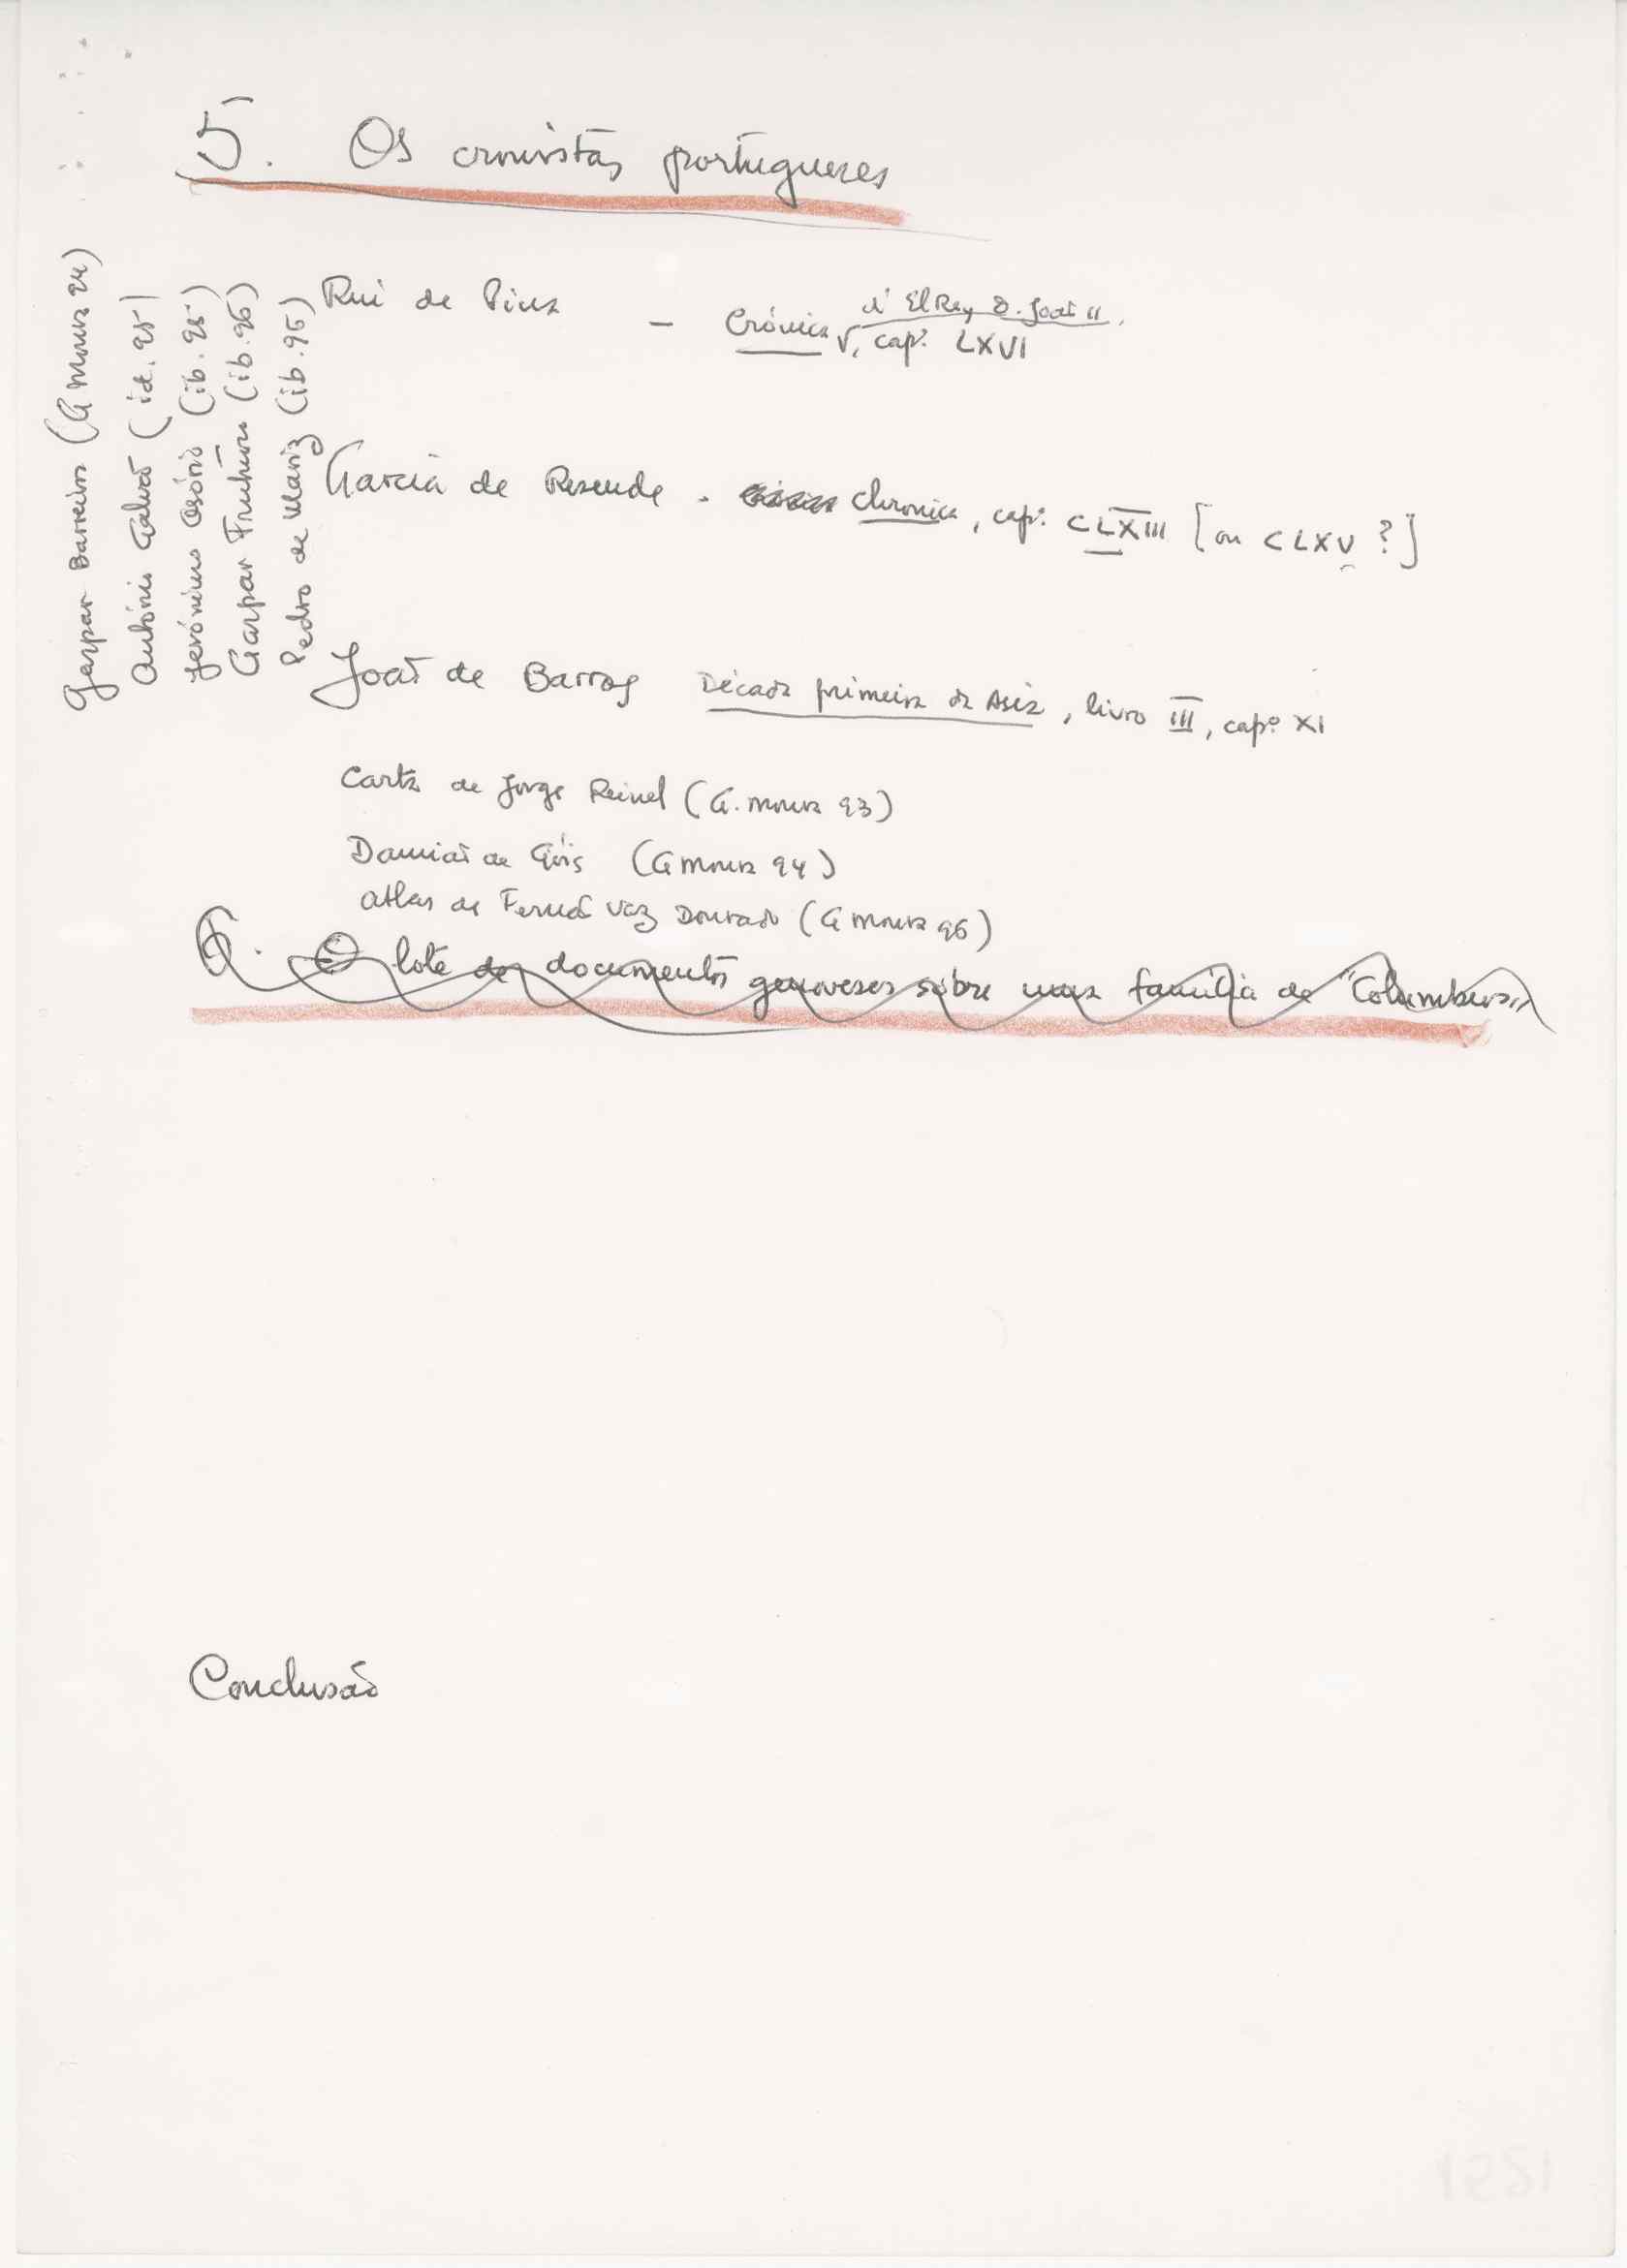 5. Os cronistas portugueses
Rui de Pina – Crónica d'El Rey D. João II,
cap.º LXVI
Garcia de Resende - Chronica, cap.º CLXIII [ou CLXV ?]
João de Barros Década primeira da Asia, livro III, cap.º XI
Carta de Jorge Reinel (G. Moura 93)
Damião de Góis (G Moura 94)
Atlas de Fernão Vaz Dourado (G Moura 96)
6. O lote de documentos genoveses sobre uma família de "Columbus"
Conclusão
Gaspar Barreiros (G Moura 94)
António Galvão (id. 95)
Jerónimo Osório (ib. 95)
Gaspar Frutuoso (ib. 96)
Pedro de Mariz (ib. 96)